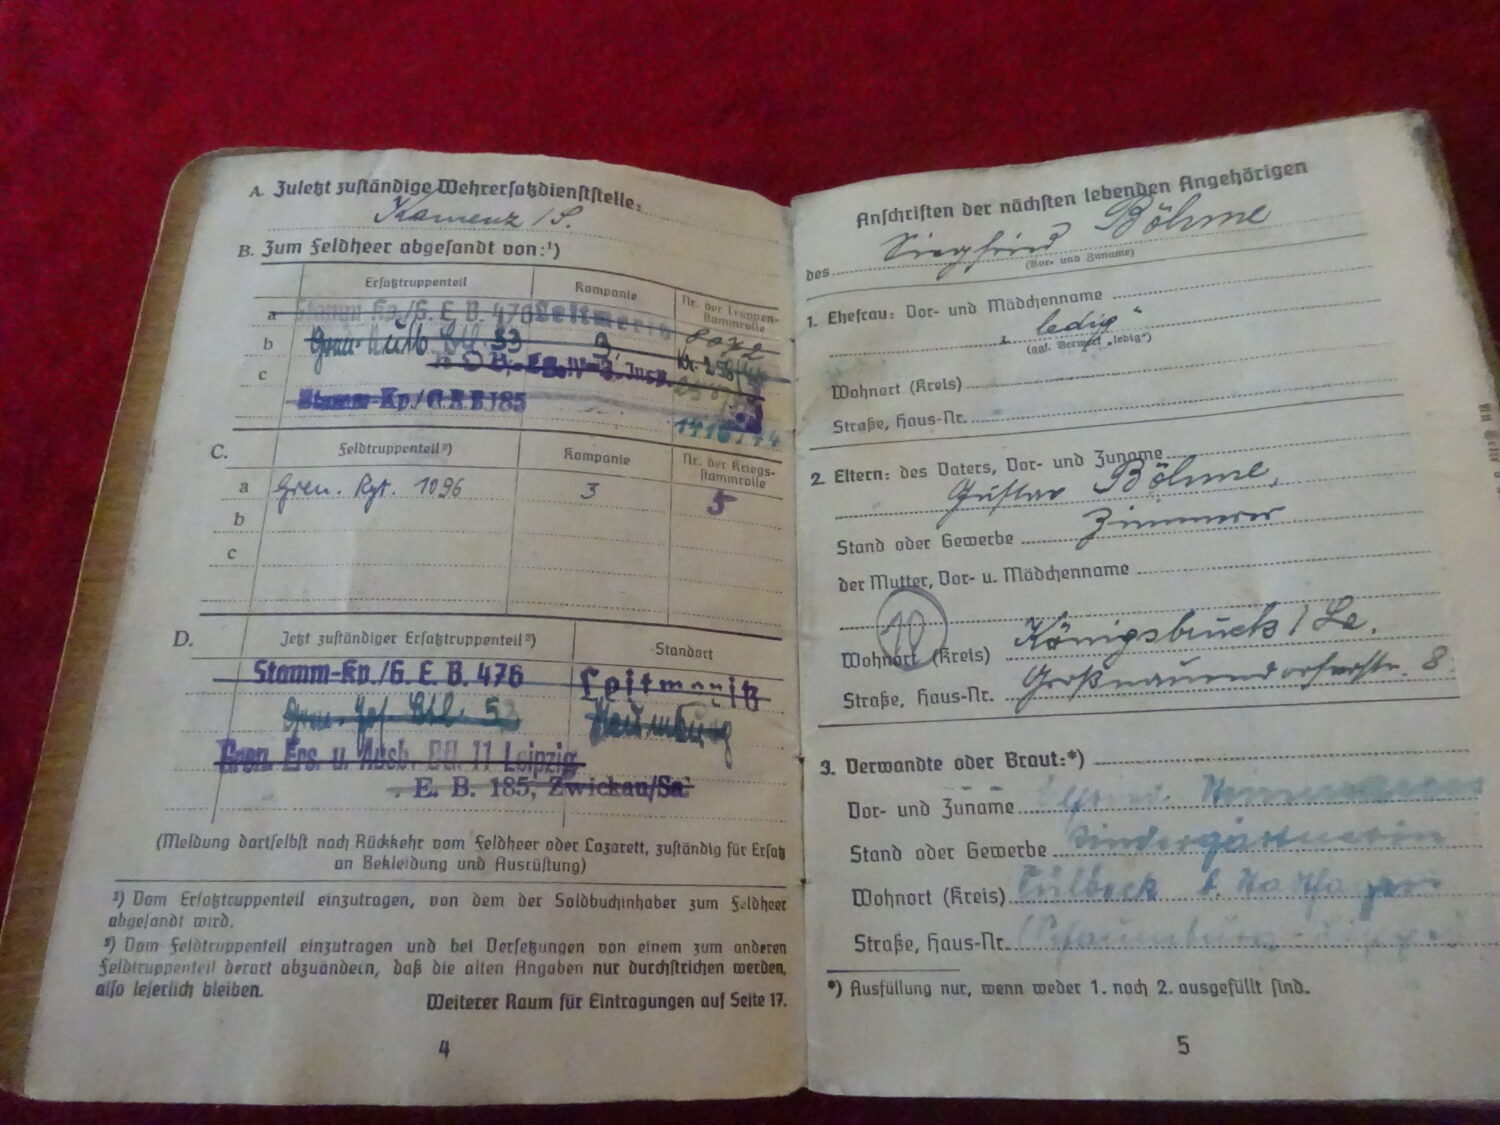 A. Zuletzt zuständige Wehrersatzdienststelle:
Kamenz / S.
B. Zum Feldheer abgesandt von:¹)
Ersatztruppenteil Kompanie Nr. der Truppen-
stammrolle
a Stamm-Kp./G. E. B. 476 Leitmeritz
b 33 3
c
Stamm-Kp./G.E.B 185
C. Feldtruppenteil²) Kompanie Nr. der Kriegs-
stammrolle
a Gren. Rgt. 1096 3 5
b
c
D. Jetzt zuständiger Ersatztruppenteil²) Standort
Stamm-Kp./G. E. B. 476 Leitmeritz
Naumburg
Gren. Ers. u. Ausb. Btl. 11 Leipzig
E. B. 185, Zwickau/Sa.
(Meldung dortselbst nach Rückkehr vom Feldheer oder Lazarett, zuständig für Ersatz
an Bekleidung und Ausrüstung)
¹) Vom Ersatztruppenteil einzutragen, von dem der Soldbuchinhaber zum Feldheer
abgesandt wird.
²) Vom Feldtruppenteil einzutragen und bei Versetzungen von einem zum anderen
Feldtruppenteil derart abzuändern, daß die alten Angaben nur durchstrichen werden,
also leserlich bleiben.
Weiterer Raum für Eintragungen auf Seite 17.
4
Anschriften der nächsten lebenden Angehörigen
des Siegfried Böhme
(Vor- und Zuname)
1. Ehefrau: Vor- und Mädchenname
„ledig“
(ggf. Vermerk „ledig“)
Wohnort (Kreis)
Straße, Haus-Nr.
2. Eltern: des Vaters, Vor- und Zuname
Gustav Böhme,
Stand oder Gewerbe Zimmerer
der Mutter, Vor- u. Mädchenname
10
Wohnort (Kreis) Königsbrück / Sa.
Straße, Haus-Nr. Großnaundorferstr. 8
3. Verwandte oder Braut:*)
Vor- und Zuname
Stand oder Gewerbe Kindergärtnerin
Wohnort (Kreis)
Straße, Haus-Nr.
*) Ausfüllung nur, wenn weder 1. noch 2. ausgefüllt sind.
5